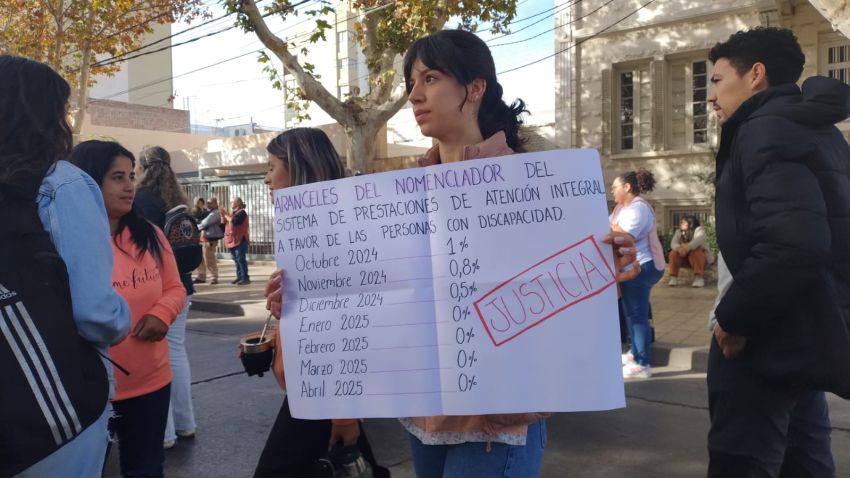 ARANCELES DEL NOMENCLADOR DEL
SISTEMA DE PRESTACIONES DE ATENCIÓN INTEGRAL
A FAVOR DE LAS PERSONAS CON DISCAPACIDAD.
Octubre 2024 1%
Noviembre 2024 0,8%
Diciembre 2024 0,5%
Enero 2025 0%
Febrero 2025 0%
Marzo 2025 0%
Abril 2025 0%
JUSTICIA
adidas